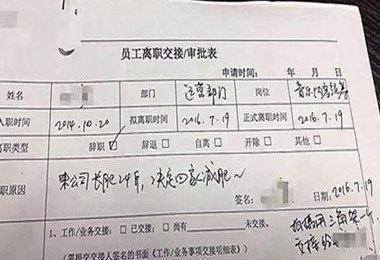 员工离职交接/审批表
申请时间: 年 月 日
姓名 部门 运营部门 岗位
入职时间 2014.10.20 拟离职时间 2016.7.19 正式离职时间 2016.7.19
离职类型 辞职✓ 辞退□ 自离□ 开除□ 其他□
职原因 来公司长肥24斤,决定回家减肥~
签名: 2016.7.19
1、工作/业务交接:□已交接;□尚有 未交接,
(需提交交接人签名的书面《工作/业务事项交接明细表》)